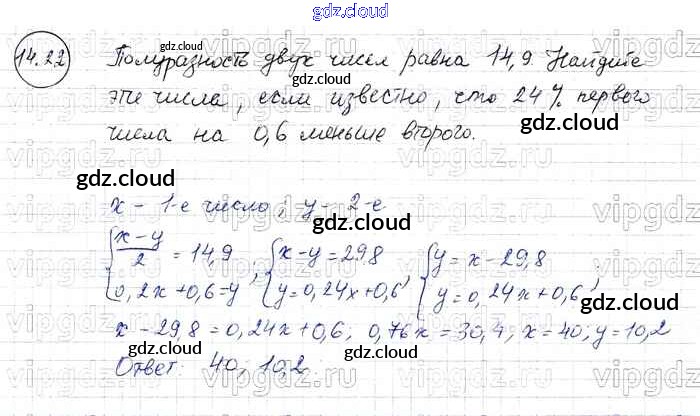 gdz.cloud
14.22 Полуразность двух чисел равна 14,9. Найдите
эти числа, если известно, что 24% первого
gdz.cloud
числа на 0,6 меньше второго.
gdz.cloud
gdz.cloud
x - 1-е число; y - 2-е
gdz.cloud
{(x-y)/2 = 14,9; {x-y=29,8, {y=x-29,8,
{0,2x+0,6=y {y=0,24x+0,6 {y=0,24x+0,6
gdz.cloud
gdz.cloud
gdz.cloud
x-29,8=0,24x+0,6; 0,76x=30,4, x=40; y=10,2
gdz.cloud
gdz.cloud
Ответ: 40; 10,2
gdz.cloud
vipgdz.ru